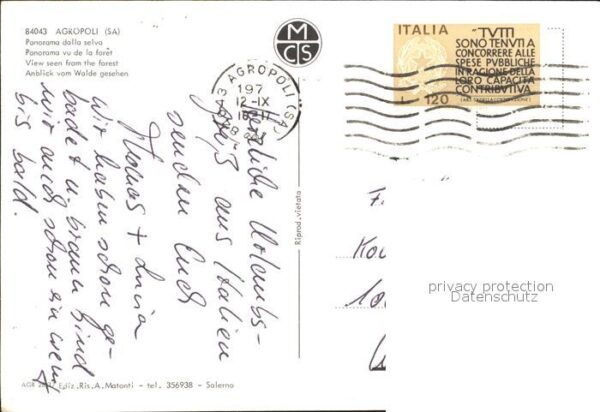 84043 AGROPOLI (SA)
Panorama dalla selva
Panorama vu de la forêt
View seen from the forest
Anblick vom Walde gesehen
MCS
ITALIA
TVTTI
SONO TENVTI A
CONCORRERE ALLE
SPESE PVBBLICHE
IN RAGIONE DELLA
LORO CAPACITÀ
CONTRIBVTIVA
L. 120
AGROPOLI (SA)
197
12-IX
Herzliche Urlaubs-
grüße aus Italien
senden Euch
Thomas +
Wir haben schon ge-
badet u. braun sind
wir auch schon ein wenig
bis bald.
Riprod. vietata
privacy protection
Datenschutz
AGR Ediz. Ris. A. Matonti - tel. 356938 - Salerno